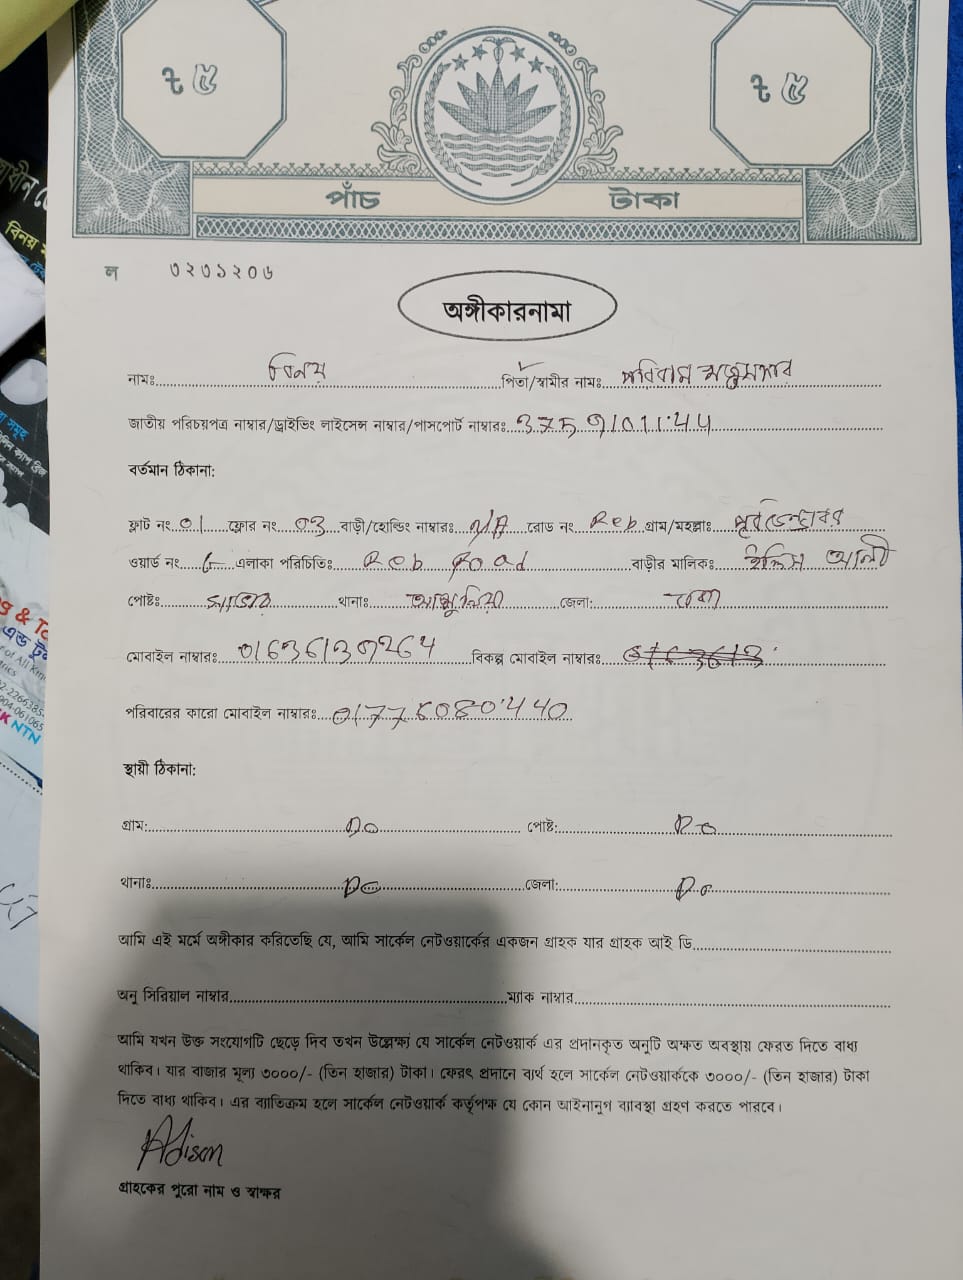 ৳ ৫ ৳ ৫
পাঁচ টাকা
ল ৩২৩১২০৬
অঙ্গীকারনামা
নামঃ বিনয় পিতা/স্বামীর নামঃ
জাতীয় পরিচয়পত্র নাম্বার/ড্রাইভিং লাইসেন্স নাম্বার/পাসপোর্ট নাম্বারঃ
বর্তমান ঠিকানা:
ফ্লাট নং 01 ফ্লোর নং 03 বাড়ী/হোল্ডিং নাম্বারঃ N/A রোড নং Reb গ্রাম/মহল্লাঃ
ওয়ার্ড নং এলাকা পরিচিতিঃ Reb Road বাড়ীর মালিকঃ আলী
পোষ্টঃ থানাঃ আশুলিয়া জেলা: ঢাকা
মোবাইল নাম্বারঃ বিকল্প মোবাইল নাম্বারঃ
পরিবারের কারো মোবাইল নাম্বারঃ
স্থায়ী ঠিকানা:
গ্রাম: Do পোষ্ট: Do
থানাঃ Do জেলা: Do
আমি এই মর্মে অঙ্গীকার করিতেছি যে, আমি সার্কেল নেটওয়ার্কের একজন গ্রাহক যার গ্রাহক আই ডি
অনু সিরিয়াল নাম্বার ম্যাক নাম্বার
আমি যখন উক্ত সংযোগটি ছেড়ে দিব তখন উল্লেক্ষ্য যে সার্কেল নেটওয়ার্ক এর প্রদানকৃত অনুটি অক্ষত অবস্থায় ফেরত দিতে বাধ্য
থাকিব। যার বাজার মূল্য ৩০০০/- (তিন হাজার) টাকা। ফেরৎ প্রদানে ব্যর্থ হলে সার্কেল নেটওয়ার্ককে ৩০০০/- (তিন হাজার) টাকা
দিতে বাধ্য থাকিব। এর ব্যাতিক্রম হলে সার্কেল নেটওয়ার্ক কর্তৃপক্ষ যে কোন আইনানুগ ব্যাবস্থা গ্রহণ করতে পারবে।
Adison
গ্রাহকের পুরো নাম ও স্বাক্ষর